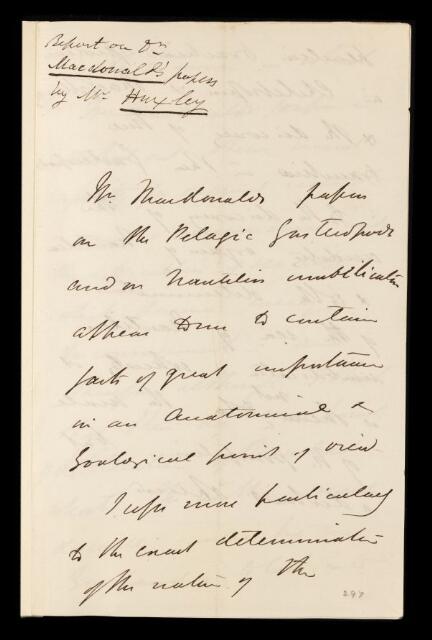 Report on Dr
Macdonald's papers
by Mr. Huxley
Mr Macdonalds papers
on the Pelagic Gasteropods
and on Nautilus umbilicatus
appear to me to contain
facts of great importance
in an anatomical &
Zoological point of view
I refer more particularly
to the exact determination
of the nature of the
297